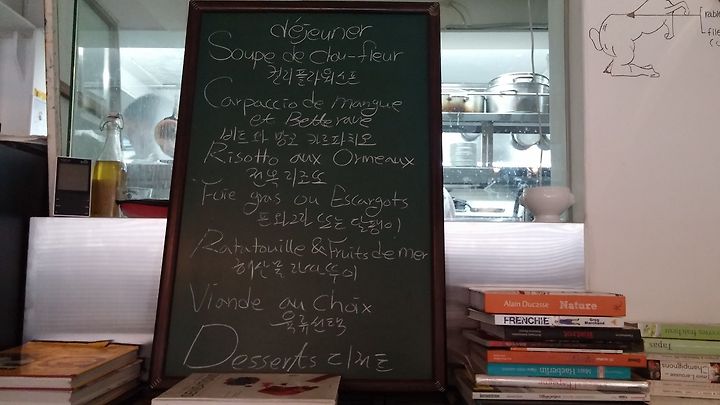 déjeuner
Soupe de chou-fleur
컬리플라워스프
Carpaccio de mangue
et Betterave
비트와 망고 카르파치오
Risotto aux Ormeaux
전복 리조또
Foie gras ou Escargots
푸와그라 또는 달팽이
Ratatouille & Fruits de mer
해산물 라따뚜이
Viande au Choix
육류선택
Desserts 디저트
Alain Ducasse Nature
FRENCHIE Greg Marchand
Marc Haeberlin
Tapas
Champignons